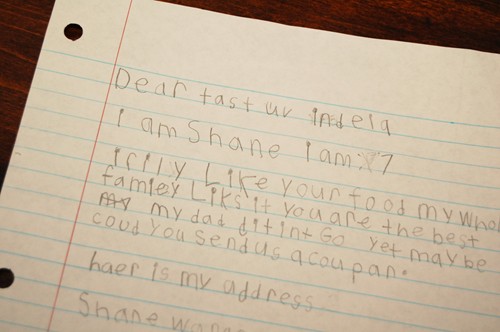 Dear tast uv indela
I am Shane I am: 7
irilly Like your food my whol
famley Liks it you are the best
my dad ditint Go yet may be
coud you send us a coupan.
haer is my address
Shane